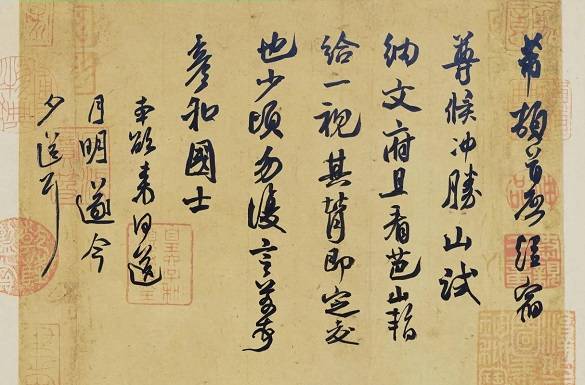 芾頓首再啓經宿
尊候冲勝山試
納文府且看芭山暫
給一視其背即定交
也少頃勿復言芾頓首
彥和國士
本欲來日送
月明遂今
夕送耳